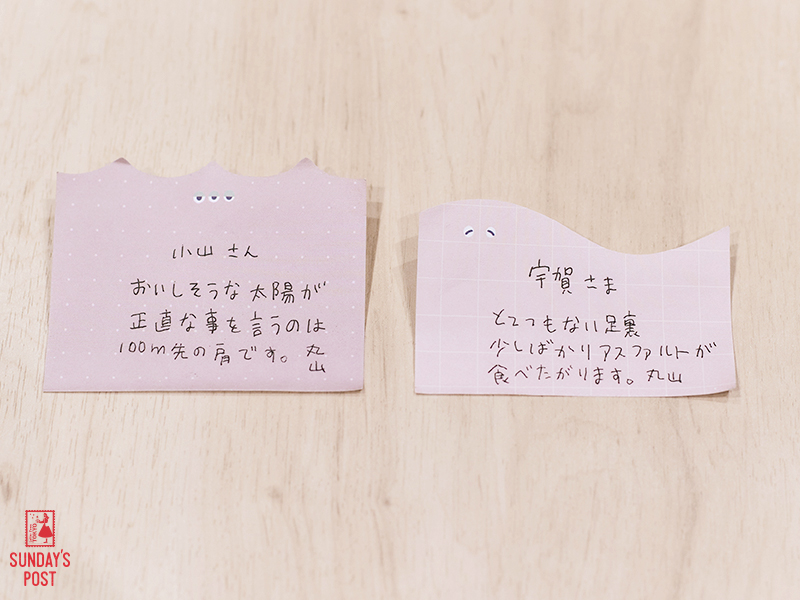 小山 さん
おいしそうな 太陽が
正直な事を言うのは
100m先の肩です。 丸山
宇賀 さま
とてつもない足裏
少しばかりアスファルトが
食べたがります。丸山
SUNDAY'S
POST